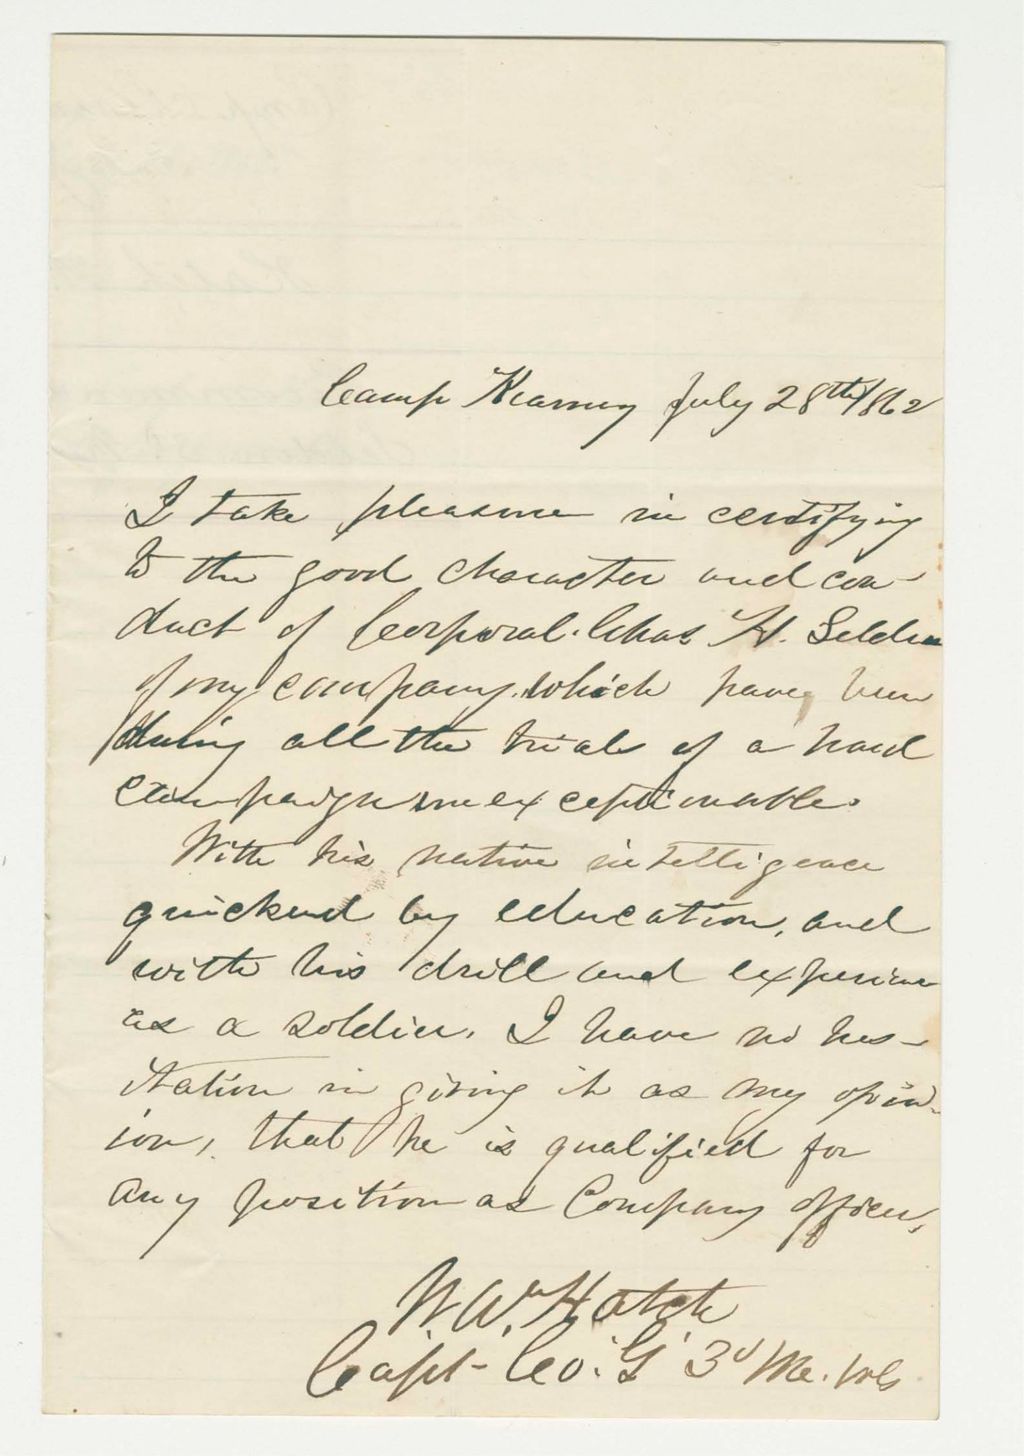 Camp Kearney July 28th/1862
I take pleasure in certifying
to the good character and con-
duct of Corporal Chas H. Selden
of my company, which have been
during all the trials of a hard
campaign unexceptionable.
With his native intelligence
quickened by education, and
with his drill and experience
as a soldier. I have no hes-
itation in giving it as my opin-
ion, that he is qualified for
any position as Company officer,
W. W. Hatch
Capt- Co. 'G' 3d Me. Vols